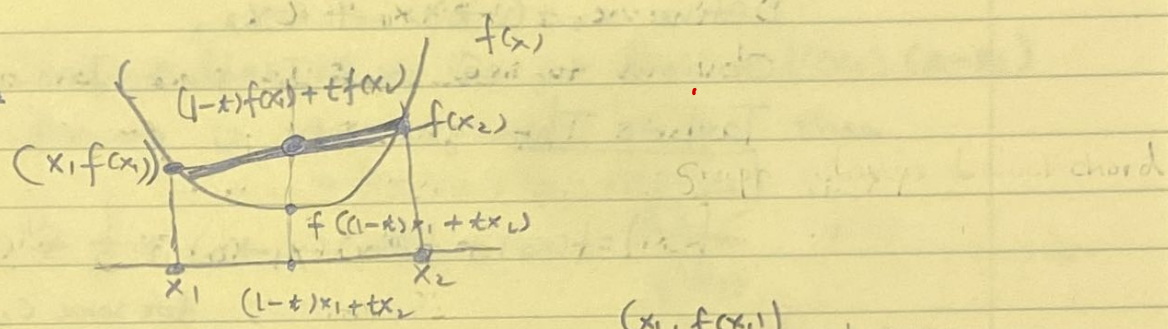 f(x)
(1-t)f(x₁)+tf(x₂)
f(x₂)
(x₁f(x₁))
f((1-t)x₁+tx₂)
x₁
x₂
(1-t)x₁+tx₂
(x₁, f(x₁))